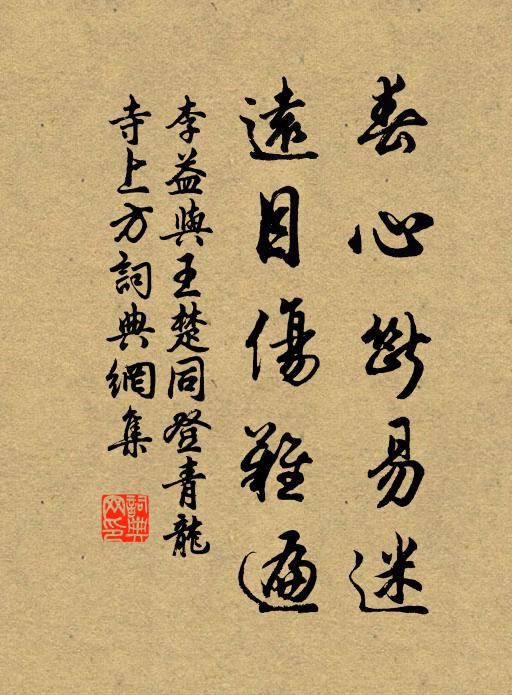 春心斷易迷
遠目傷難遍
李益與王楚同登青龍
寺上方詞典網集
詞典網印